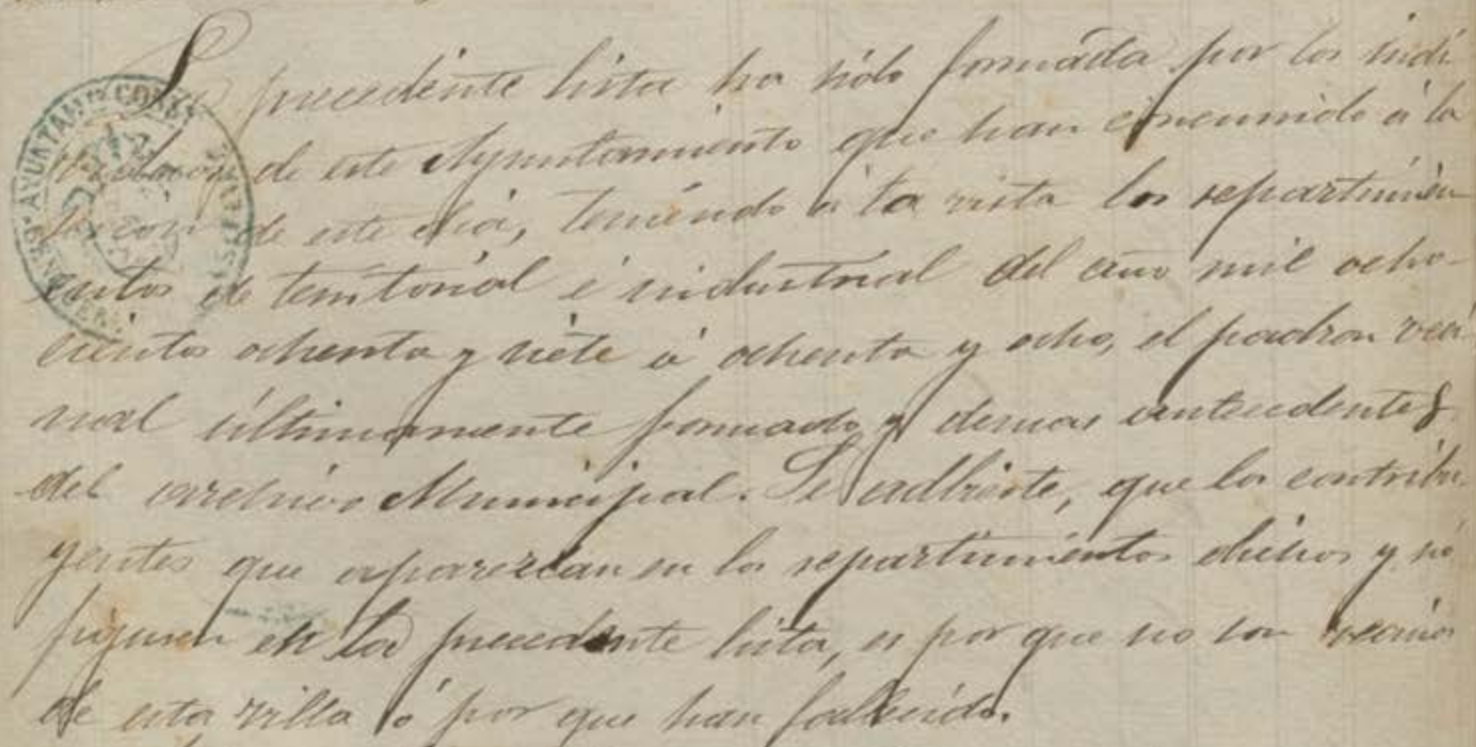 La precedente lista ha sido formada por los indi-
viduos de este Ayuntamiento que han concurrido á la
sesión de este dia, teniendo á la vista los repartimien-
tos de territorial é industrial del año mil ocho-
cientos ochenta y siete á ochenta y ocho, el padron veci-
nal últimamente formado y demas antecedentes
del archivo Municipal. Se adbierte, que los contribu-
yentes que aparezcan en los repartimientos dichos y no
figuren en la precedente lista, es por que no son vecinos
de esta villa ó por que han fallecido.
AYUNTAM